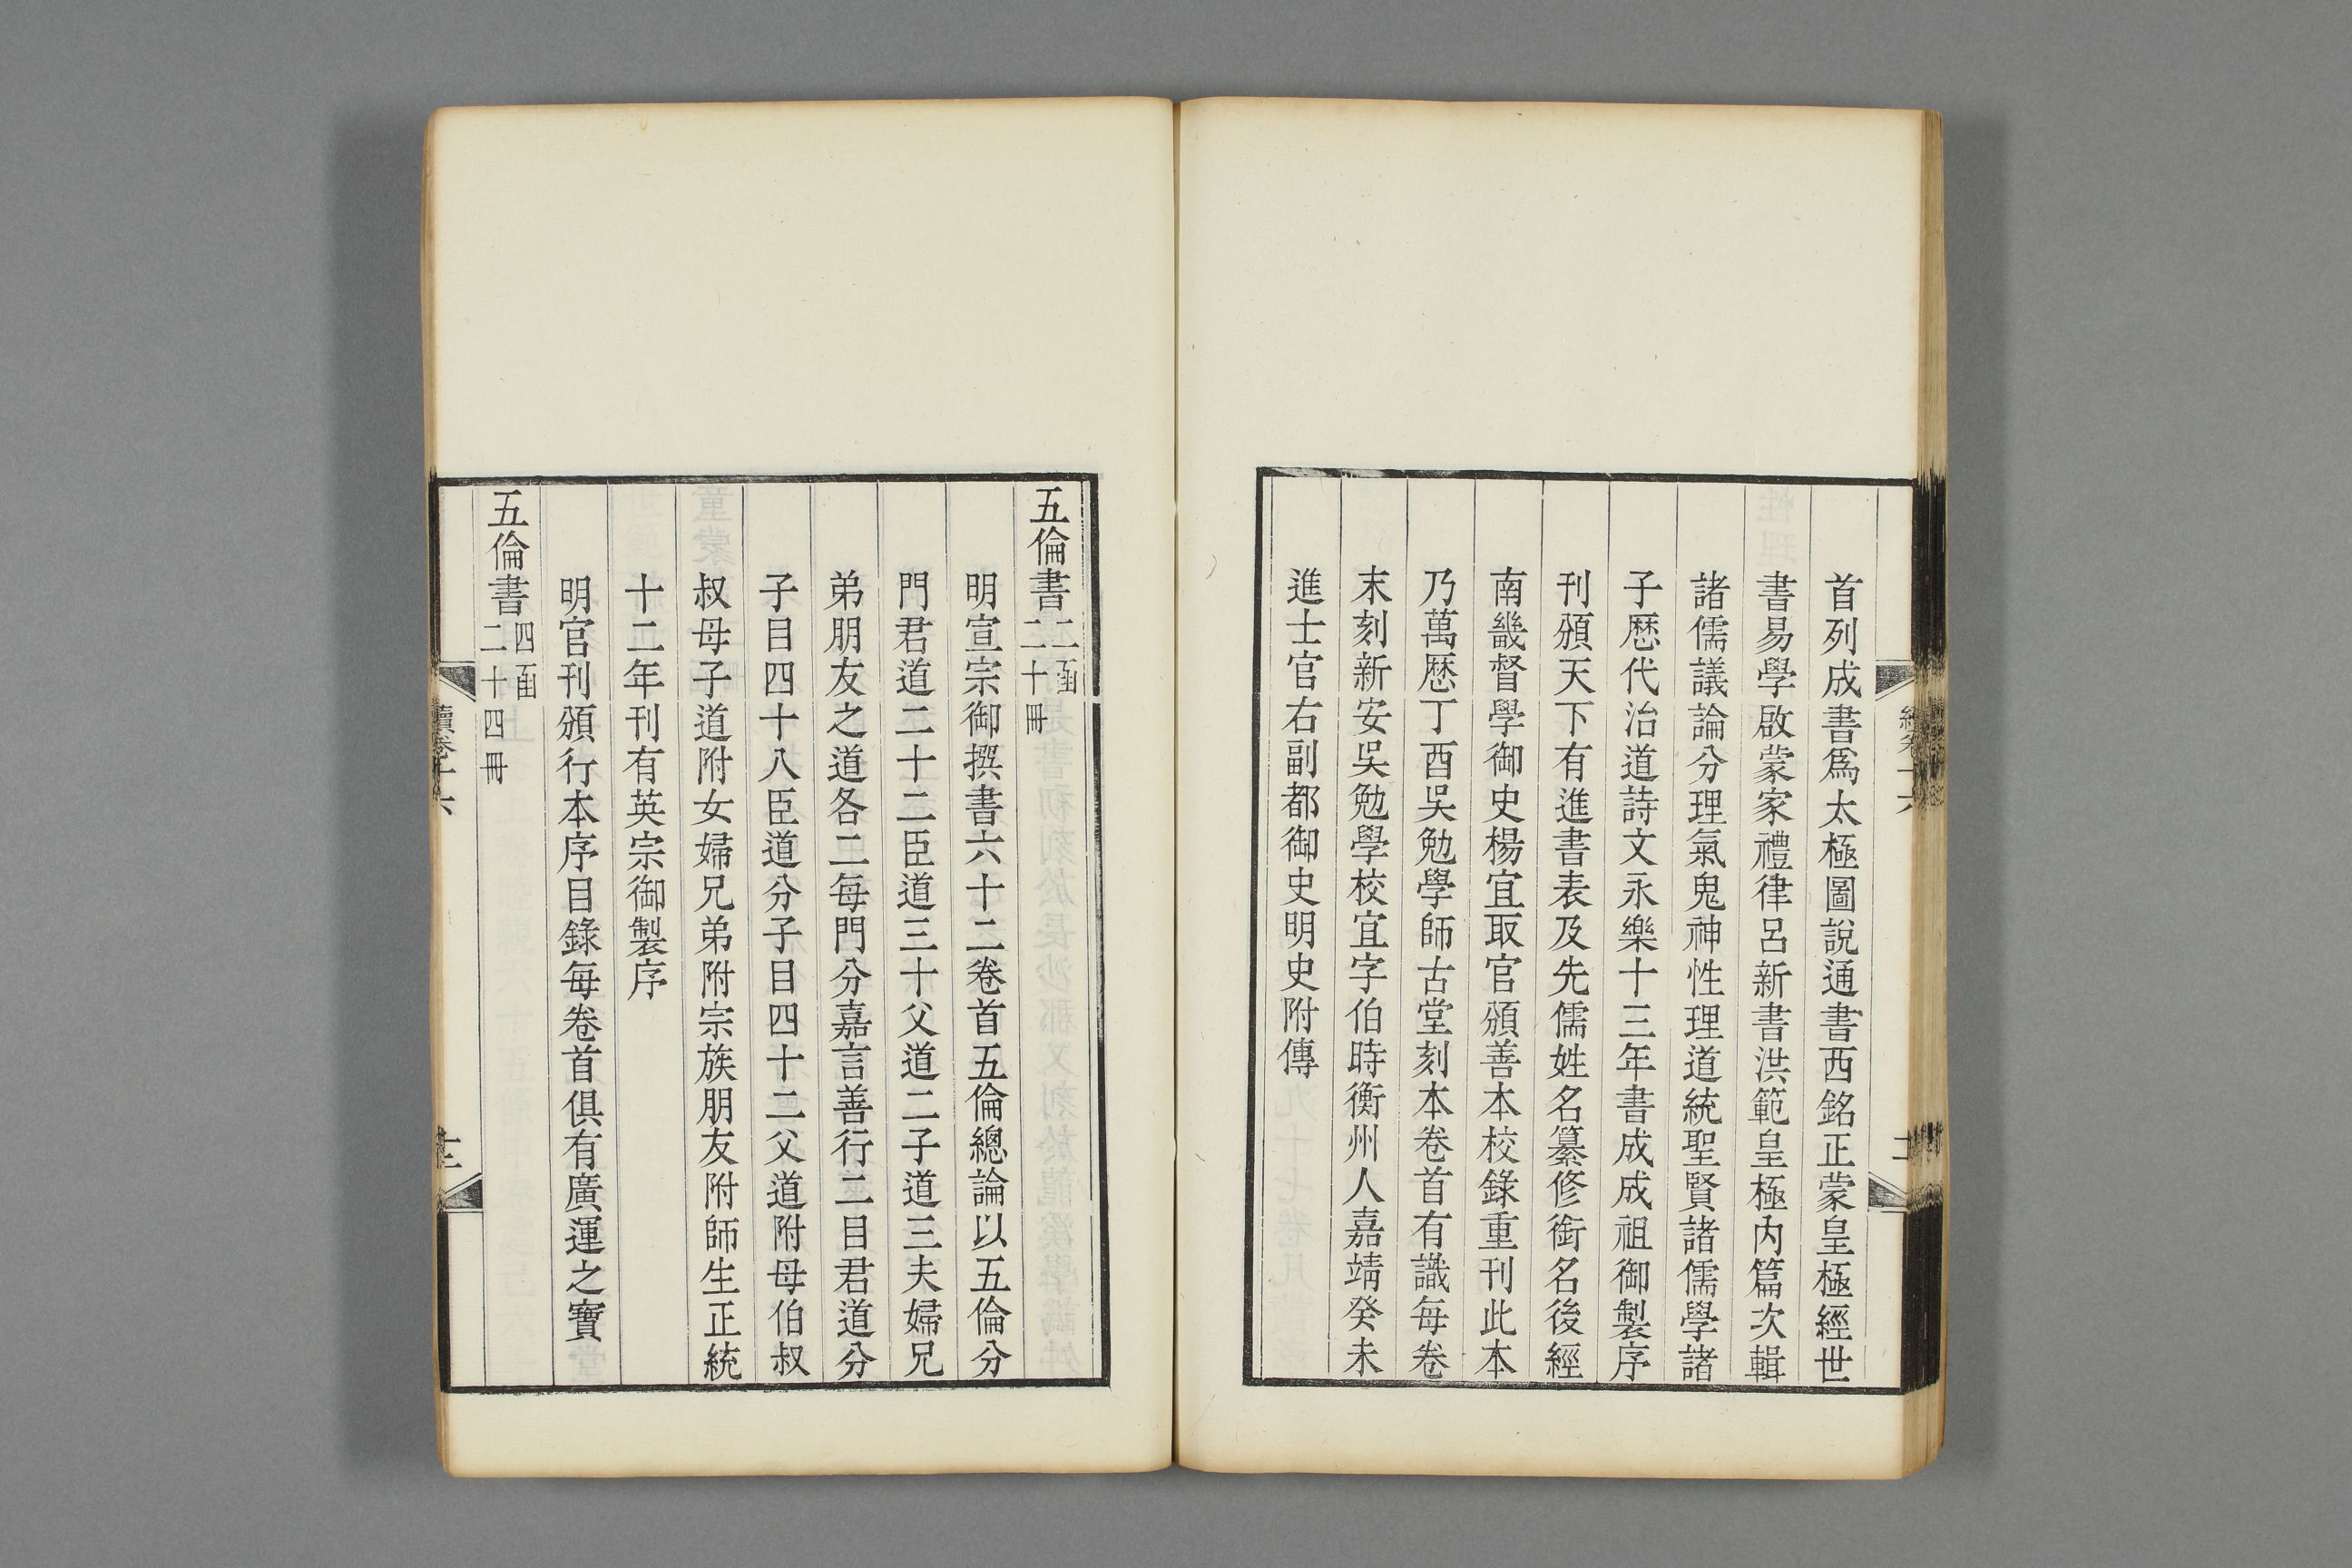 首列成書爲太極圖說通書西銘正蒙皇極經世
書易學啟蒙家禮律呂新書洪範皇極內篇次輯
諸儒議論分理氣鬼神性理道統聖賢諸儒學諸
子歷代治道詩文永樂十三年書成成祖御製序
刊頒天下有進書表及先儒姓名纂修銜名後經
南畿督學御史楊宜取官頒善本校錄重刊此本
乃萬歷丁酉吳勉學師古堂刻本卷首有識每卷
末刻新安吳勉學校宜字伯時衡州人嘉靖癸未
進士官右副都御史明史附傳
五倫書二函二十冊
明宣宗御撰書六十二卷首五倫總論以五倫分
門君道二十二臣道三十父道二子道三夫婦兄
弟朋友之道各二每門分嘉言善行二目君道分
子目四十八臣道分子目四十二父道附母伯叔
叔母子道附女婦兄弟附宗族朋友附師生正統
十二年刊有英宗御製序
明官刊頒行本序目錄每卷首俱有廣運之寶
五倫書四函二十四冊
續卷十六